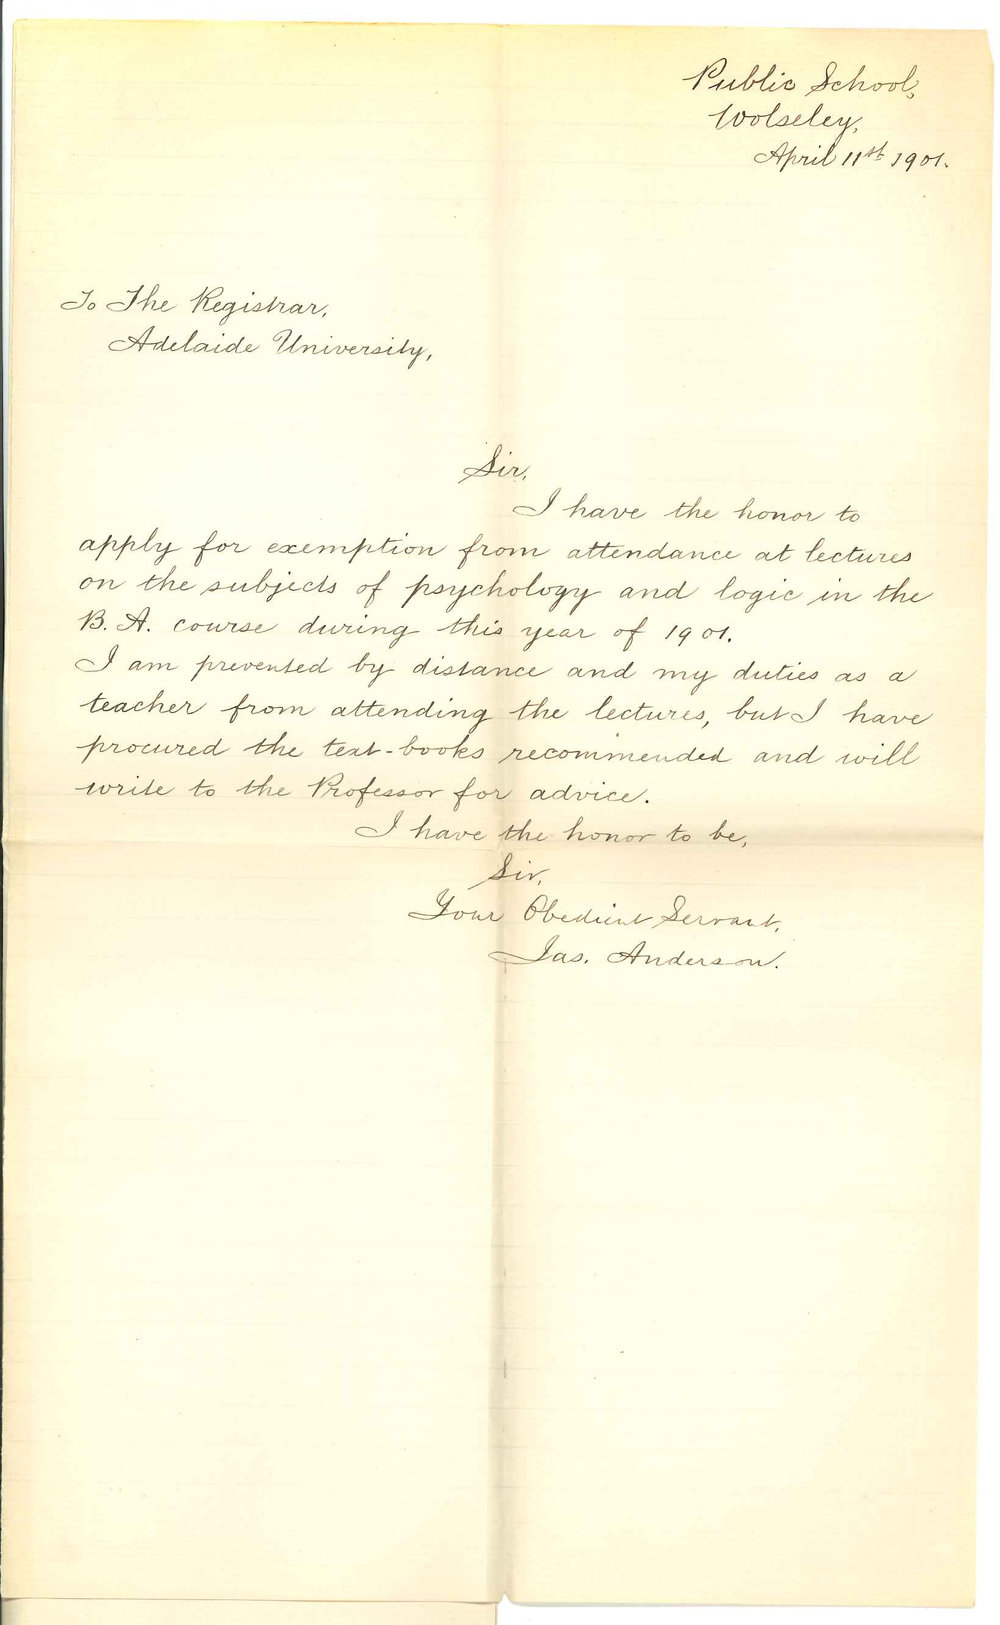 Public School,
Wolseley,
April 11th 1901.
To The Registrar,
Adelaide University,
Sir,
I have the honor to
apply for exemption from attendance at lectures
on the subjects of psychology and logic in the
B. A. course during this year of 1901.
I am prevented by distance and my duties as a
teacher from attending the lectures, but I have
procured the text-books recommended and will
write to the Professor for advice.
I have the honor to be,
Sir,
Your Obedient Servant,
Jas. Anderson.